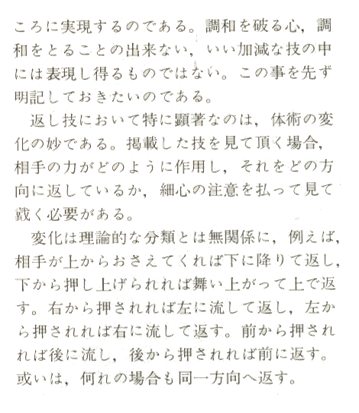 ころに実現するのである。調和を破る心，調
和をとることの出来ない，いい加減な技の中
には表現し得るものではない。この事を先ず
明記しておきたいのである。
返し技において特に顕著なのは，体術の変
化の妙である。掲載した技を見て頂く場合，
相手の力がどのように作用し，それをどの方
向に返しているか，細心の注意を払って見て
戴く必要がある。
変化は理論的な分類とは無関係に，例えば，
相手が上からおさえてくれば下に降りて返し，
下から押し上げられれば舞い上がって上で返
す。右から押されれば左に流して返し，左か
ら押されれば右に流して返す。前から押され
れば後に流し，後から押されれば前に返す。
或いは，何れの場合も同一方向へ返す。